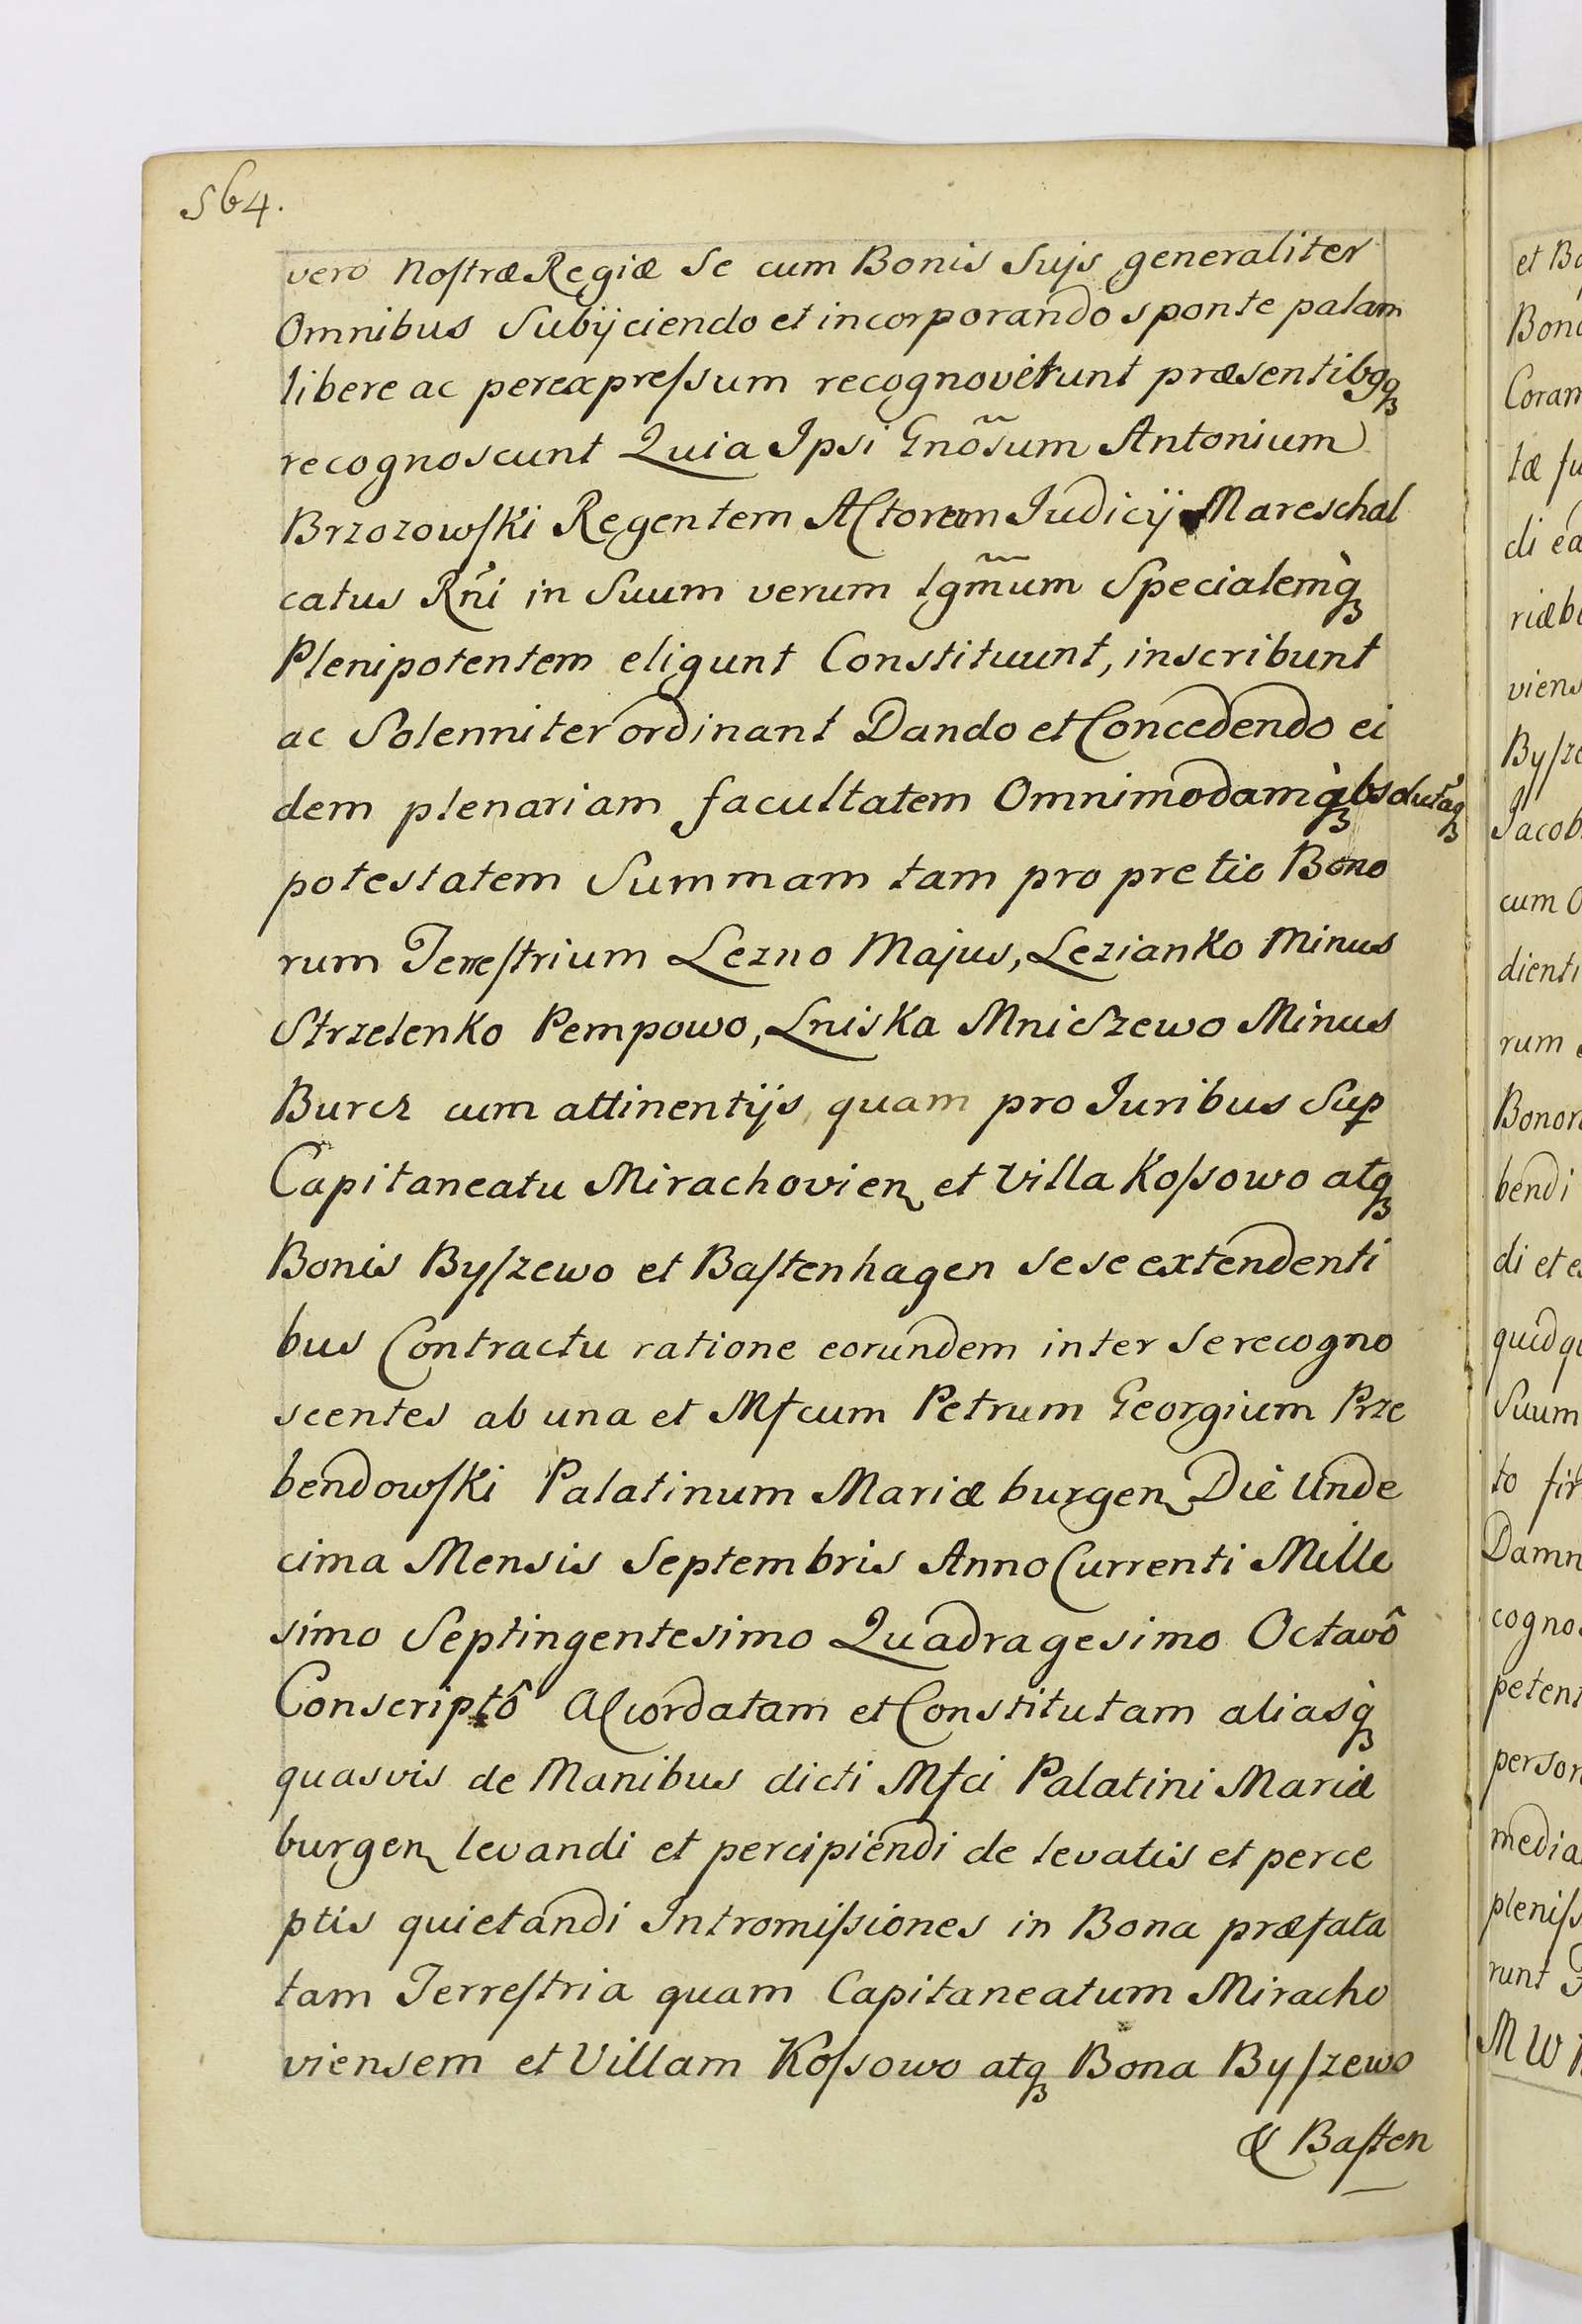 564.
vero Noſtræ Regiæ Se cum Bonis Suijs generaliter
Omnibus Subijciendo et incorporando sponte palam
libere ac perexpreſsum recognoverunt præsentibqq̨
recognoscunt Quia Ipsi Gnõsum Antonium
Brzozowſki Regentem Actorum Judicij Mareschal
catus Rñi in Suum verum lgm̃um Specialemq̨
Plenipotentem eligunt Constituunt, inscribunt
ac Solenniter ordinant Dando et Concedendo ei
dem plenariam facultatem Omnimodamq̨ absolutãq̨
potestatem Summam tam pro pretio Bono
rum Terreſtrium Lezno Majus, Lezianko Minus
Strzelenko Pempowo, Lniska Mniszewo Minus
Burcz cum attinentijs, quam pro Juribus Sup
Capitaneatu Mirachovien et Villa Koſsowo atq̨
Bonis Byſzewo et Baſtenhagen sese extendenti
bus Contractu ratione eorundem inter Se recogno
scentes ab una et Mfcum Petrum Georgium Prze
bendowſki Palatinum Mariæburgen Die Unde
cima Mensis Septembris Anno Currenti Mille
simo Septingentesimo Quadragesimo Octavô
Conscriptô Accordatam et Constitutam aliasq̨
quasvis de Manibus dicti Mfci Palatini Mariæ
burgen levandi et percipiendi de levatis et perce
ptis quietandi Intromiſsiones in Bona præfata
tam Terreſtria quam Capitaneatum Miracho
viensem et Villam Koſsowo atq̨ Bona Byſzewo
& Baſten
et
Bon
Coram
tæ fu
di ea
riæb
viens
Byſz
Jacob
cum O
dienti
rum
Bonor
bendi
di et e
quidq
Suum
to fir
Damn
cogno
petent
person
media
pleniſs
runt
M W